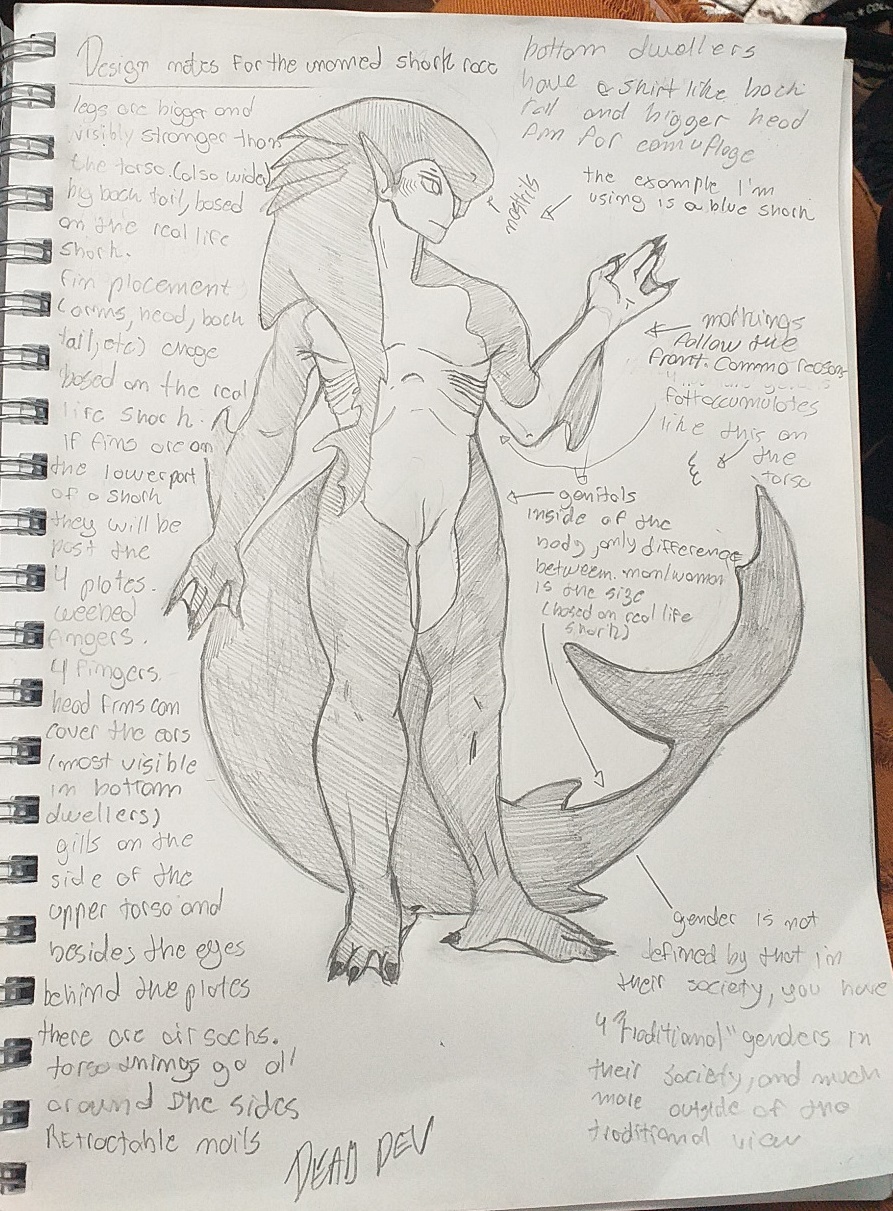 Design notes for the unomed shork roce
legs ore bigger and
visibly stronger thon
the torso. (olso wide)
big boch toil, bosed
on the reol life
shork.
fin plocement
(orms, heod, boch
toil, etc) choge
bosed on the reol
life shorh.
If fins ore on
the lowerport
of o shorh
they will be
post the
4 plotes.
weebed
fingers.
4 fingers.
heod fins con
cover the eors
(most visible
in bottom
dwellers)
gills on the
side of the
upper torso ond
besides the eyes
behind the plotes
there ore oir sochs.
torso things go oll
oround the sides
REtroctoble noils
DEAD DEV
bottom dwellers
hove o shirt like boch
toil ond bigger heod
fin for comufloge
the exomple I'm
using is o blue shorh
nostrils
morkings
follow the
front. Common reosons
fottoccumulotes
like this on
the
torso
genitols
inside of the
body, only difference
between. mon/womon
is the size
(bosed on reol life
shorh)
gender is not
defined by thot in
their society, you hove
4 "Troditionol" genders in
their society, ond much
more outside of the
troditionol view